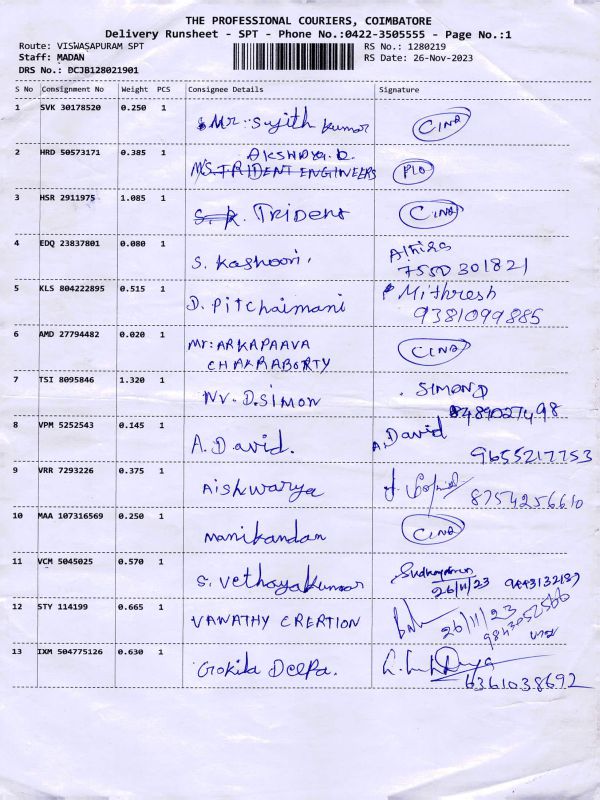 THE PROFESSIONAL COURIERS, COIMBATORE
Delivery Runsheet - SPT - Phone No.:0422-3505555 - Page No.:1
Route: VISWASAPURAM SPT
RS No.: 1280219
Staff: MADAN
RS Date: 26-Nov-2023
DRS No.: DCJB128021901
S No Consignment No Weight PCS Consignee Details Signature
1 SVK 30178520 0.250 1 Mr. Sujith kumar CINA
2 HRD 50573171 0.385 1 AKSHAYA.R
M/S.TRIDENT ENGINEERS PLO
3 HSR 2911975 1.085 1 Trident CINA
4 EDQ 23837801 0.080 1 S. Kashoori. Athira
7550301821
5 KLS 804222895 0.515 1 D. Pitchaimani Mithresh
9381099885
6 AMD 27794482 0.020 1 Mr: ARKAPAAVA
CHAKRABORTY CINA
7 TSI 8095846 1.320 1 Mr. D.SIMON SIMON D
8489027498
8 VPM 5252543 0.145 1 A. David. A. David
9655217753
9 VRR 7293226 0.375 1 Aishwarya 8754256610
10 MAA 107316569 0.250 1 manikandan CINA
11 VCM 5045025 0.570 1 S. Vethayakumar
26/11/23 9443132189
12 STY 114199 0.665 1 VANATHY CRERTION 26/11/23
9843052566
13 IXM 504775126 0.630 1 Gokila Deepa.
6361038692